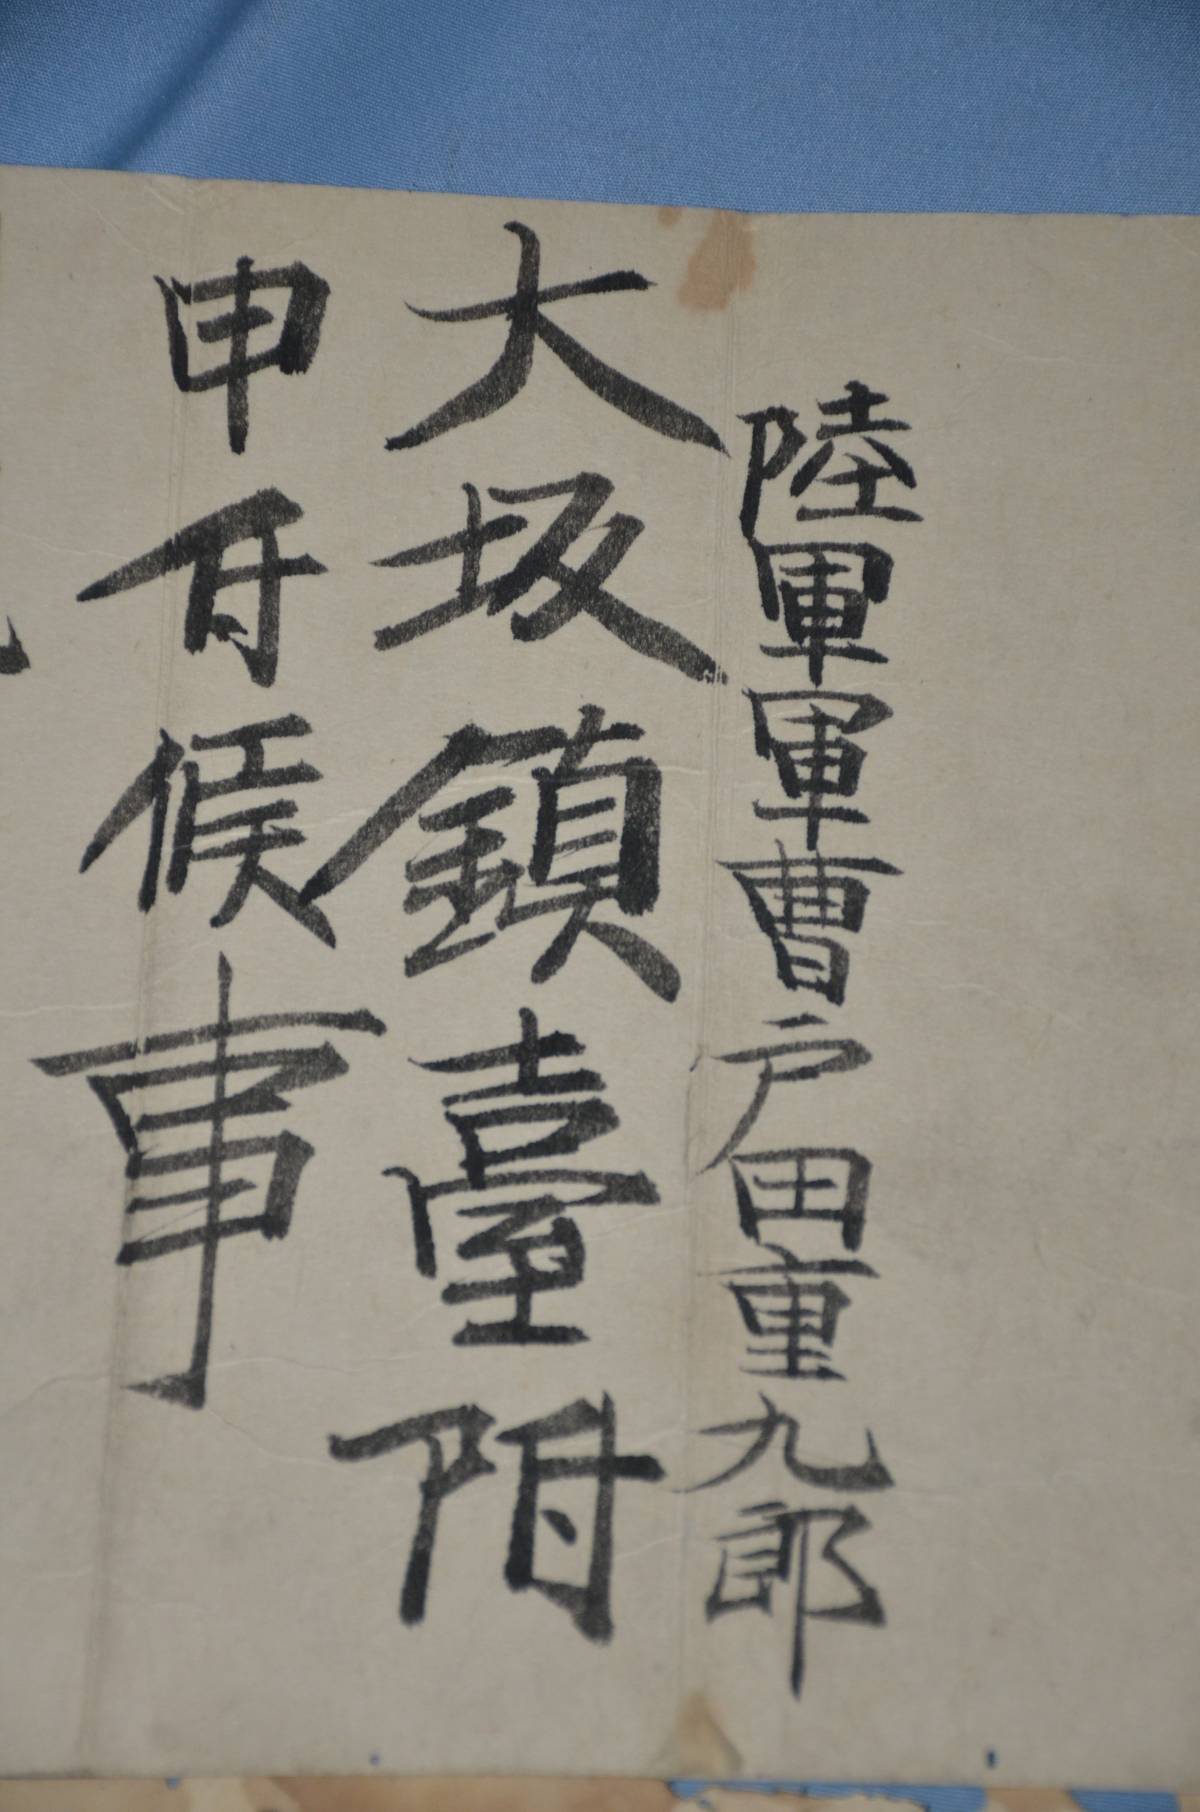 陸軍軍曹戸田重九郎
大坂鎮臺附
申付候事